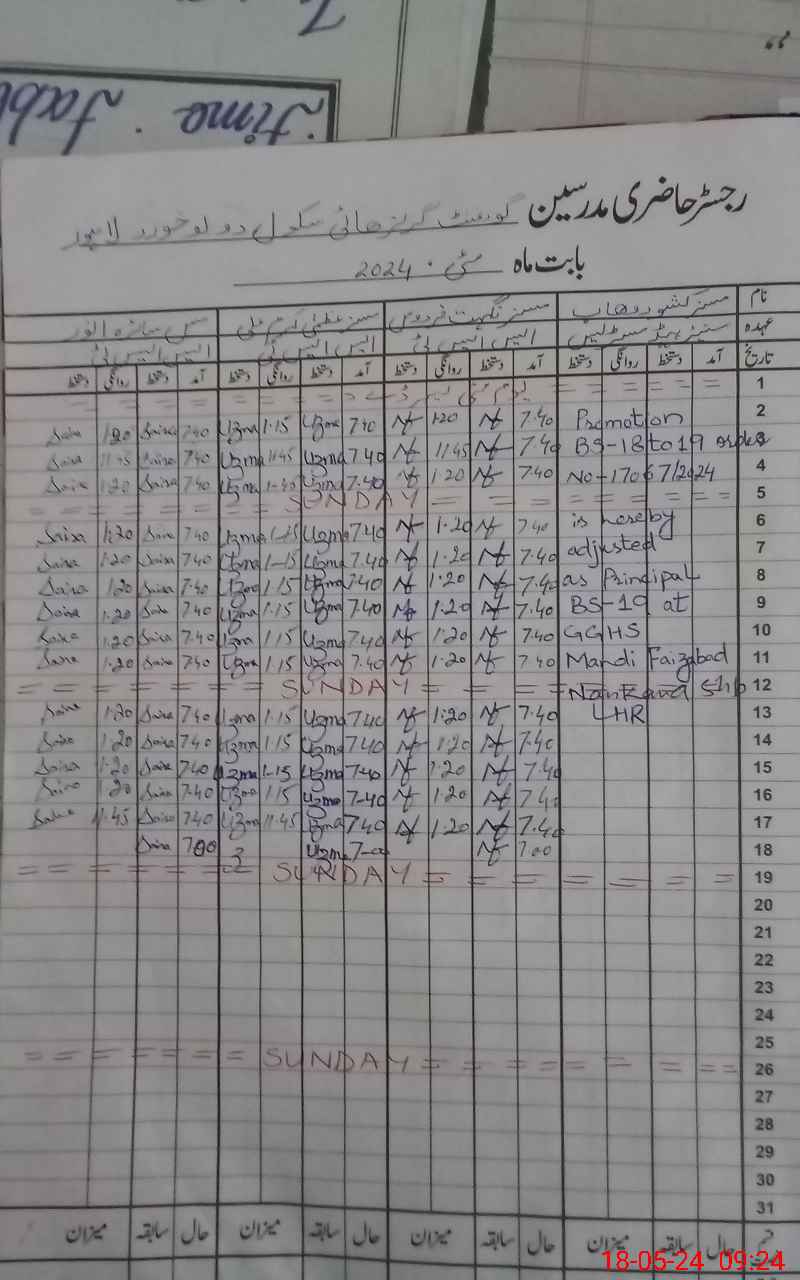 time Tabl
رجسٹر حاضری مدرسین گورنمنٹ گرلز ہائی سکول دولو خورد لاہور
بابت ماہ مئی 2024
نام مسز کشور وھاب مسز نگہت فردوس مسز عظمیٰ اکرم علی مس سائرہ انور
عہدہ سینئر ہیڈ مسٹریس ایس ایس ٹی ایس ایس ٹی ایس ایس ٹی
تاریخ آمد دستخط روانگی دستخط آمد دستخط روانگی دستخط آمد دستخط روانگی دستخط آمد دستخط روانگی دستخط
1
Saira 1.20 Saira 7.40 Uzma 1.15 Uzma 7.40 Nf 1.20 Nf 7.40 Promotion 2
Saira 11.45 Saira 7.40 Uzma 11.45 Uzma 7.40 Nf 11.45 Nf 7.40 BS-18 to 19 order 3
Saira 1.20 Saira 7.40 Uzma Uzma 7.40 Nf 1.20 Nf 7.40 No-17067/2024 4
= = = = = = SUNDAY = = = = = = = = 5
Saira 1.20 Saira 7.40 Uzma 1-15 Uzma 7.40 Nf 1.20 Nf 7.40 is hereby 6
Saira 1.20 Saira 7.40 Uzma 1-15 Uzma 7.40 Nf 1.20 Nf 7.40 adjusted 7
Saira 1.20 Saira 7.40 Uzma 1.15 Uzma 7.40 Nf 1.20 Nf 7.40 as Principal 8
Saira 1.20 Saira 7.40 Uzma 1.15 Uzma 7.40 Nf 1.20 Nf 7.40 BS-19 at 9
Saira 1.20 Saira 7.40 Uzma 1.15 Uzma 7.40 Nf 1.20 Nf 7.40 GGHS 10
Saira 1.20 Saira 7.40 Uzma 1.15 Uzma 7.40 Nf 1.20 Nf 7.40 Mandi Faizabad 11
= = = = = = SUNDAY = = = = Nankana Shb 12
Saira 1.20 Saira 7.40 Uzma 1.15 Uzma 7.40 Nf 1.20 Nf 7.40 LHR 13
Saira 1.20 Saira 7.40 Uzma 1.15 Uzma 7.40 Nf 1.20 Nf 7.40 14
Saira 1.20 Saira 7.40 Uzma 1-15 Uzma 7.40 Nf 1.20 Nf 7.40 15
Saira 1.20 Saira 7.40 Uzma 1.15 Uzma 7-40 Nf 1.20 Nf 7.40 16
Saira 11.45 Saira 7.40 Uzma 11.45 Uzma 7.40 Nf 1.20 Nf 7.40 17
Saira 7.00 Uzma 7-00 Nf 7.00 18
= = = = = SUNDAY = = = = = = = = 19
20
21
22
23
24
25
= = = = = = SUNDAY = = = = = = = = 26
27
28
29
30
31
حال سابقہ میزان حال سابقہ میزان حال سابقہ میزان حال سابقہ میزان
18-05-24 09:24